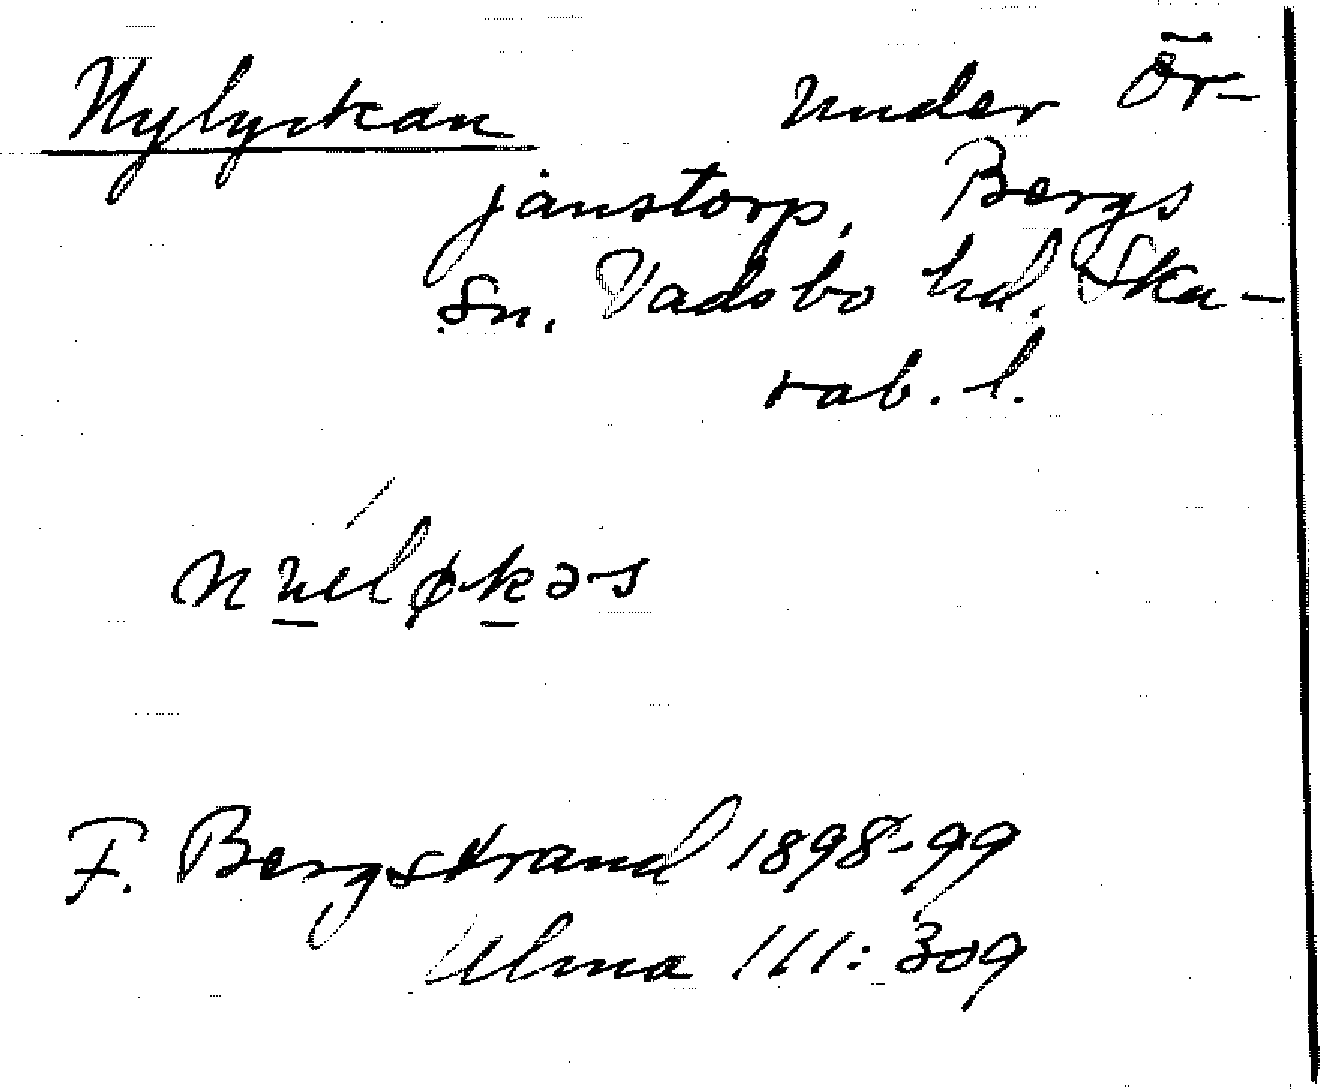 Nylyckan under Ör-
janstorp, Bergs
sn. Vadsbo hd. Ska-
rab. l.
F. Bergstrand 1898-99
Ulma 111:309